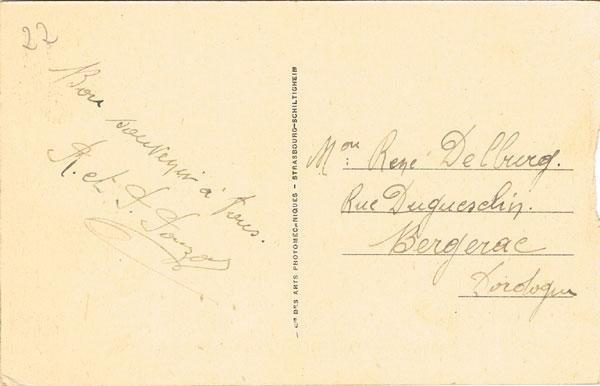 22
Bon
souvenir à tous.
R. et J.
Cie DES ARTS PHOTOMÉCANIQUES - STRASBOURG-SCHILTIGHEIM
Mon: René Delburg.
Rue Duguesclin.
Bergerac
Dordogne